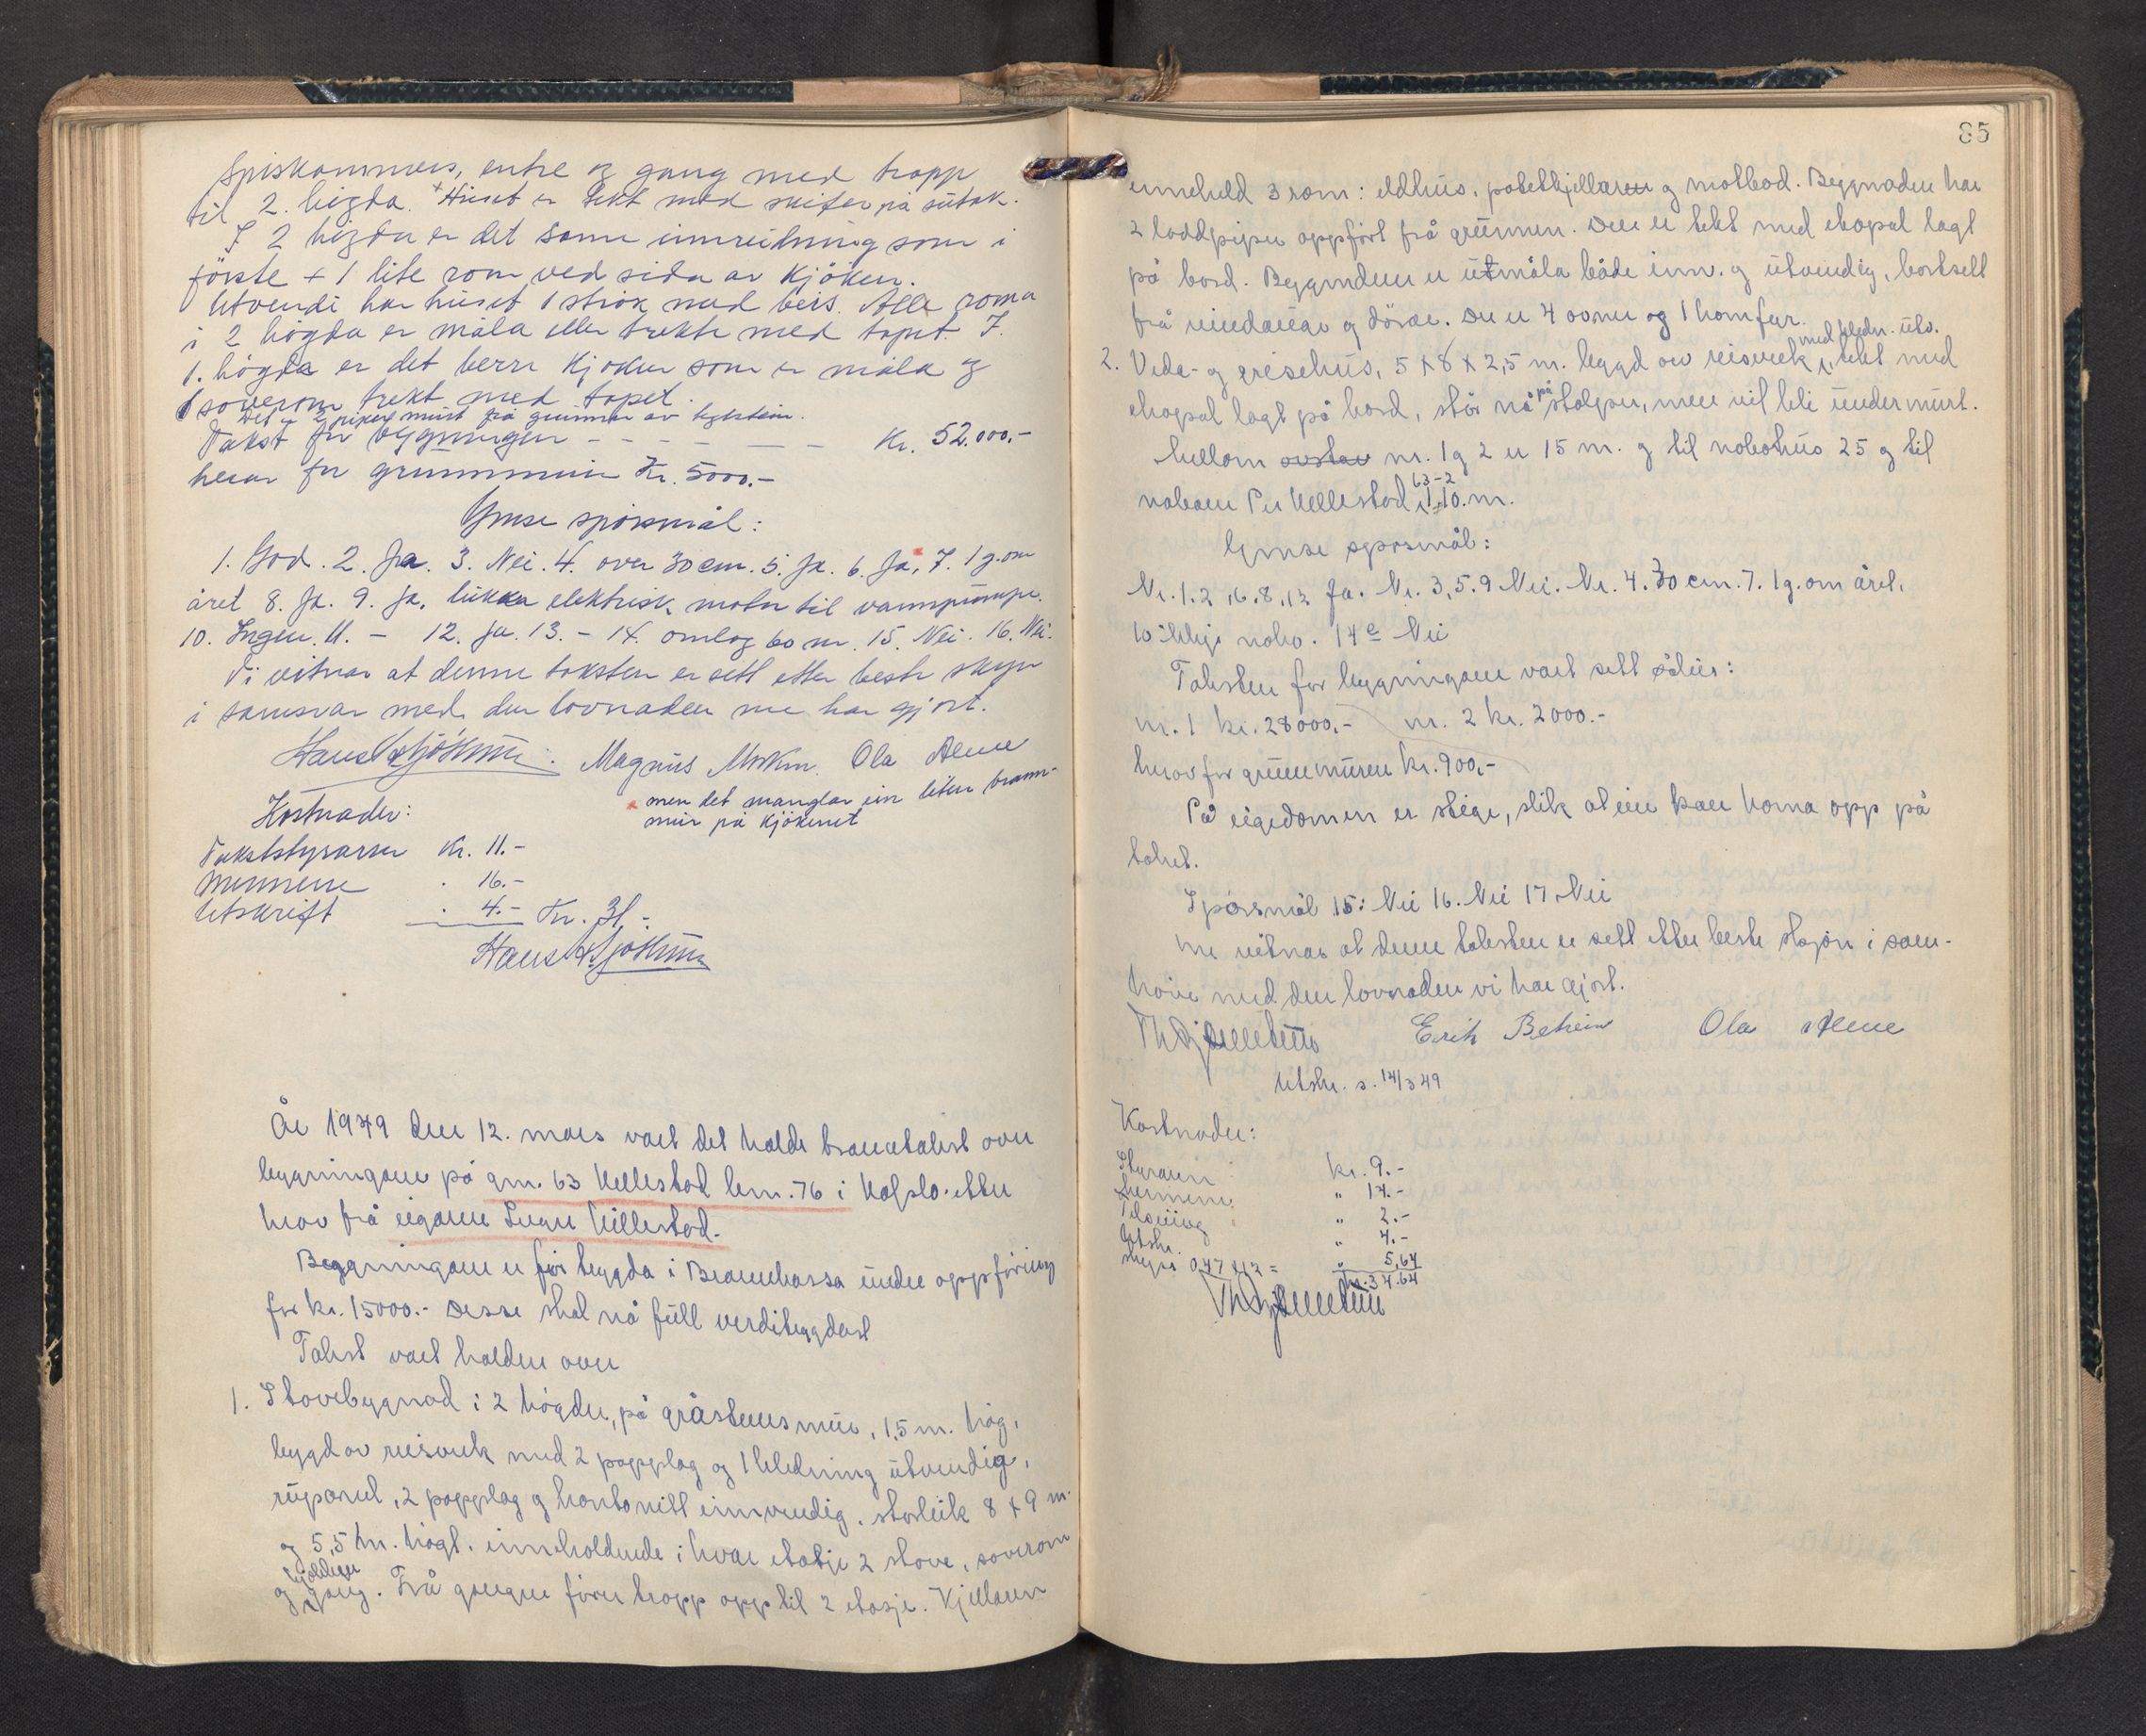 Spiskammers, entre og gang med trapp
til 2. högda. + Huset er tekt med skifer på sutak.
I 2 högda er det same innreining som i
förste + 1 lite rom ved sida av kjöken.
Utvendi har huset 1 strök med beis. Alle roma
i 2 högda er måla eller trekte med tapet. I
1. högda er det berre kjöken som er måla og
1 soverom trekt med tapet.
Det er 2 piper murt frå grunnen av teglstein.
Takst for bygningen - - - - - - Kr. 52.000.-
herav for grunnmuren Kr. 5000.-
Ymse spörsmål:
1. God. 2. Ja. 3. Nei. 4. over 30 cm. 5. Ja. 6. Ja, 7. 1 g. om
året 8. Ja. 9. Ja, lukka elektrisk motor til vannpumpe.
10. Ingen. 11. - 12. Ja. 13. - 14. omlag 60 m. 15. Nei. 16. Nei.
Vi vitnar at denne taksten er sett etter beste skyn
i samsvar med den lovnaden me har gjort.
Magnus Ola Alme
men det manglar ein liten brann-
mur på kjökenet
Kostnader:
Takststyraren Kr. 11.-
Mennene " 16.-
Utskrift " 4.- Kr. 31.-
År 1949 den 12. mars vart det halde branntakst over
bygningane på gnr. 63 Kvellestad bnr. 76 i Hafslo etter
krav frå eigaren Kvellestad.
Bygningane er för trygda i Brannkassa under oppföring
for kr. 15000.- Desse skal nå full verditrygdast
Takst vart halden over
1. Stovebygnad i 2 högder, på gråsteinsmur, 1,5 m. høg,
bygd av reisverk med 2 papplag og 1 kledning utvendig,
rupanel, 2 papplag og huntonitt innvendig. storleik 8 x 9 m.
og 5,5 m. høgt. inneholdende i hvar etasje 2 stove, soverom
kjökken
og gang. Frå gangen förer trapp opp til 2 etasje. Kjellaren
85
inneheld 3 rom: eldhus, potetkjellaren og matbod. Bygnaden har
2 loddpiper oppfört frå grunnen. Den er tekt med etapal lagt
på bord. Bygnaden er utmåla både inn- og utvendig, bortsett
frå vindauge og dörar. Der er 4 ovner og 1 komfyr.
med kledn. utv.
2. Vede- og grisehus, 5 x 8 x 2,5 m. bygd av reisverk, tekt med
etapal lagt på bord, står nå på stolper, men vil bli undermurt.
Mellom avstav nr. 1 og 2 er 15 m. og til nabohus 25 og til
63-2
naboen Per Kvellestad, 110. m.
Ymse spørsmål:
Nr. 1. 2, 6. 8, 12 Ja. Nr. 3, 5. 9 Nei. Nr. 4. 30 cm. 7. 1 g. om året.
10 ikkje noko. 14e Nei
Taksten for bygningane vart sett såleis:
nr. 1 kr. 28000.- nr. 2 kr. 2000.-
herav for grunnmuren kr. 900,-
På eigedomen er stige, slik at ein kan koma opp på
taket.
Spørsmål 15: Nei 16. Nei 17. Nei
Me vitnar at denne taksten er sett etter beste skjøn i sam-
høve med den lovnaden vi har gjort.
Erik Ola Alme
Utskr. s. 14/3 49
Kostnader:
Styraren kr. 9.-
Mennene " 14.-
" 2.-
Utskr. " 4.-
Skyss 0,47 x 12 = " 5,64
kr. 34.64